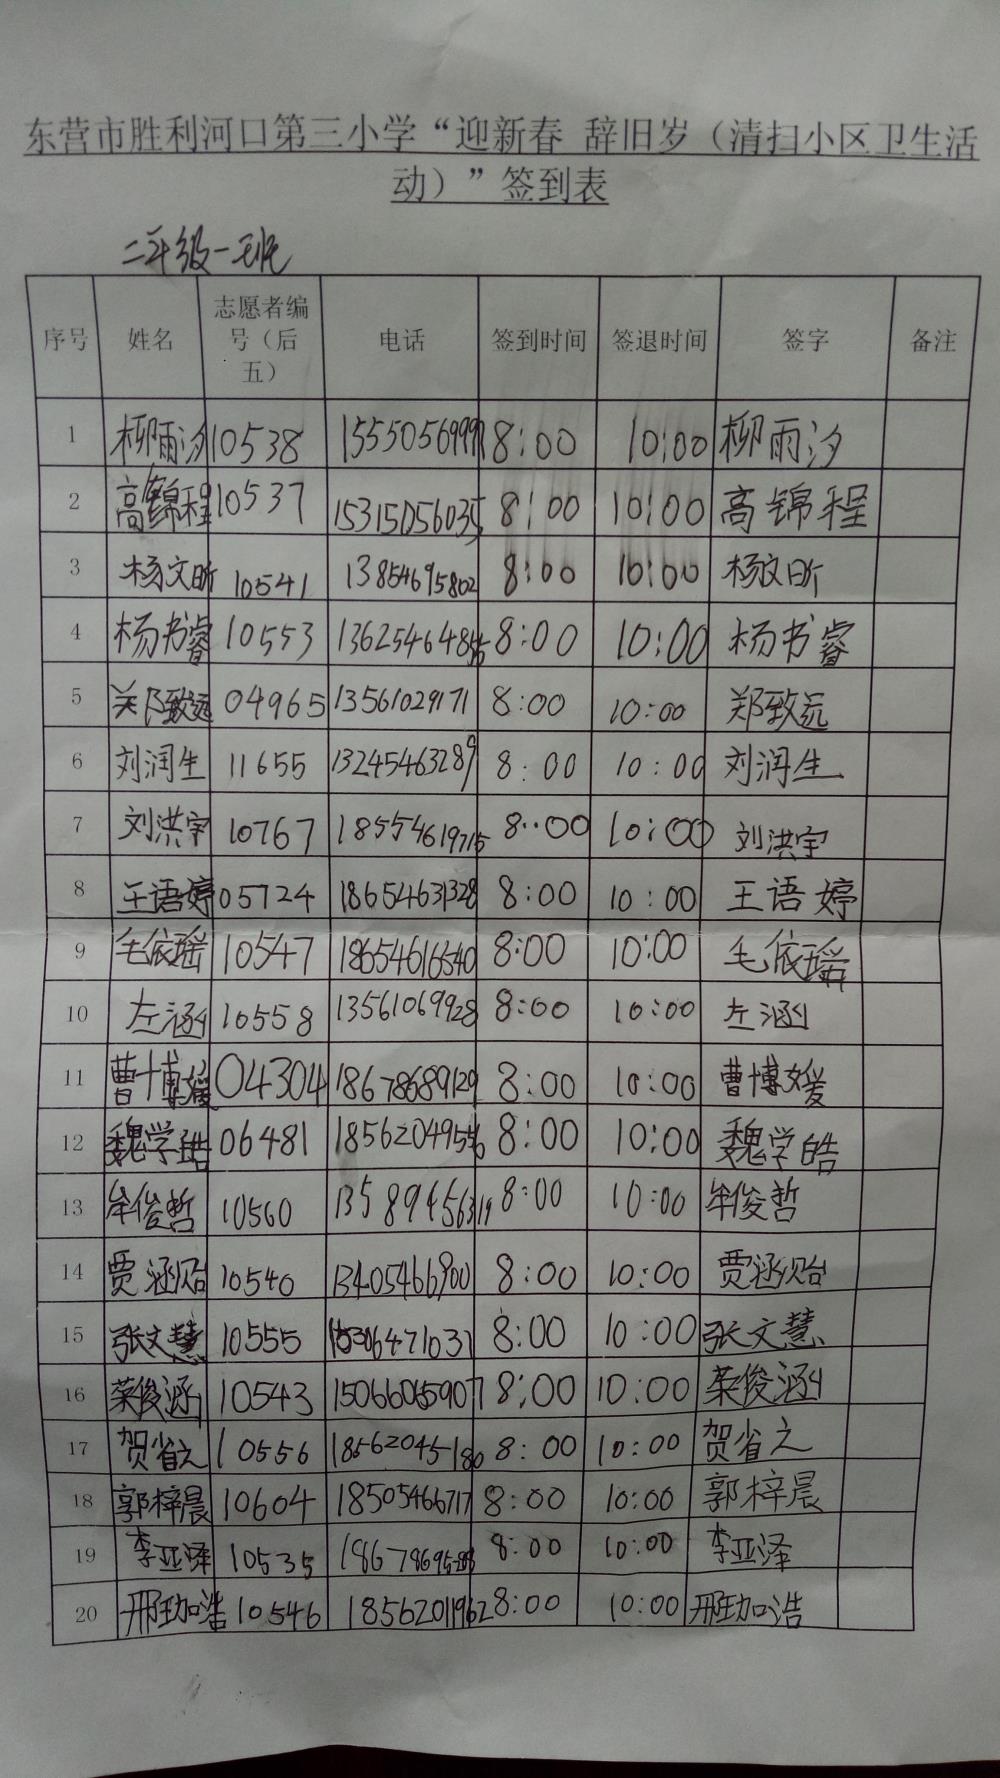 东营市胜利河口第三小学“迎新春 辞旧岁（清扫小区卫生活
动）”签到表
二年级一班
序号 姓名 志愿者编号（后五） 电话 签到时间 签退时间 签字 备注
1 柳雨汐 10538 8:00 10:00 柳雨汐
2 高锦程 10537 15315056035 8:00 10:00 高锦程
3 杨文昕 10541 13854695802 8:00 10:00 杨文昕
4 杨书睿 10553 8:00 10:00 杨书睿
5 郑致远 04965 13561029171 8:00 10:00 郑致远
6 刘润生 11655 13245463289 8:00 10:00 刘润生
7 刘洪宇 10767 18554619715 8:00 10:00 刘洪宇
8 王语婷 05724 18654631328 8:00 10:00 王语婷
9 毛依瑶 10547 18654616540 8:00 10:00 毛依瑶
10 左涵 10558 13561069928 8:00 10:00 左涵
11 曹博媛 04304 18678689129 8:00 10:00 曹博媛
12 魏学皓 06481 18562049556 8:00 10:00 魏学皓
13 牟俊哲 10560 8:00 10:00 牟俊哲
14 贾涵贻 10540 13405466900 8:00 10:00 贾涵贻
15 张文慧 10555 15306471031 8:00 10:00 张文慧
16 荣俊涵 10543 15066065907 8:00 10:00 荣俊涵
17 贺省之 10556 18562045180 8:00 10:00 贺省之
18 郭梓晨 10604 18505466717 8:00 10:00 郭梓晨
19 李亚泽 10535 8:00 10:00 李亚泽
20 邢珈浩 10546 18562011962 8:00 10:00 邢珈浩